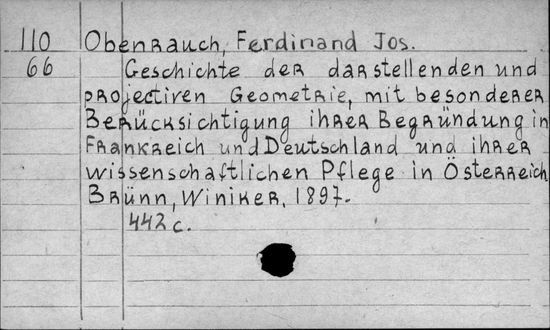 110 Obenrauch, Ferdinand Jos.
66 Geschichte der darstellenden und
projectiven Geometrie, mit besonderer
Berücksichtigung ihrer Begründung in
Frankreich und Deutschland und ihrer
wissenschaftlichen Pflege in Österreich
Brünn, Winiker, 1897.
442 c.